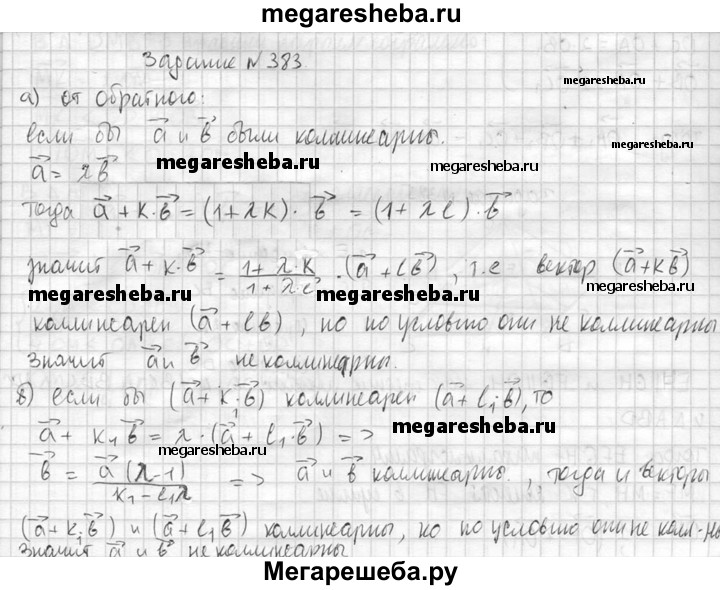 megaresheba.ru
Задание №383
megaresheba.ru
а) от обратного:
если бы a⃗ и в⃗ были коллинеарны.
megaresheba.ru
a⃗ = λв⃗
megaresheba.ru
megaresheba.ru
тогда a⃗ + k·в⃗ = (1+λk)·в⃗ = (1+λl)·в⃗
значит a⃗ + k·в⃗ = (1+λ·k)/(1+λ·l) · (a⃗ + lв⃗), т.е вектор (a⃗+kв⃗)
megaresheba.ru
megaresheba.ru
megaresheba.ru
коллинеарен (a⃗ + lв), но по условию они не коллинеарны
значит a⃗ и в⃗ не коллинеарны.
б) если бы (a⃗ + k₁·в⃗) коллинеарен (a⃗ + l₁·в⃗), то
a⃗ + k₁в⃗ = λ·(a⃗ + l₁·в⃗) =>
megaresheba.ru
megaresheba.ru
в⃗ = a⃗(λ-1)/(k₁-l₁λ) => a⃗ и в⃗ коллинеарны., тогда и векторы
(a⃗+k₁в⃗) и (a⃗+l₁в⃗) коллинеарны, но по условию они не колл-ны
значит a⃗ и в⃗ не коллинеарны
Мегарешеба.ру